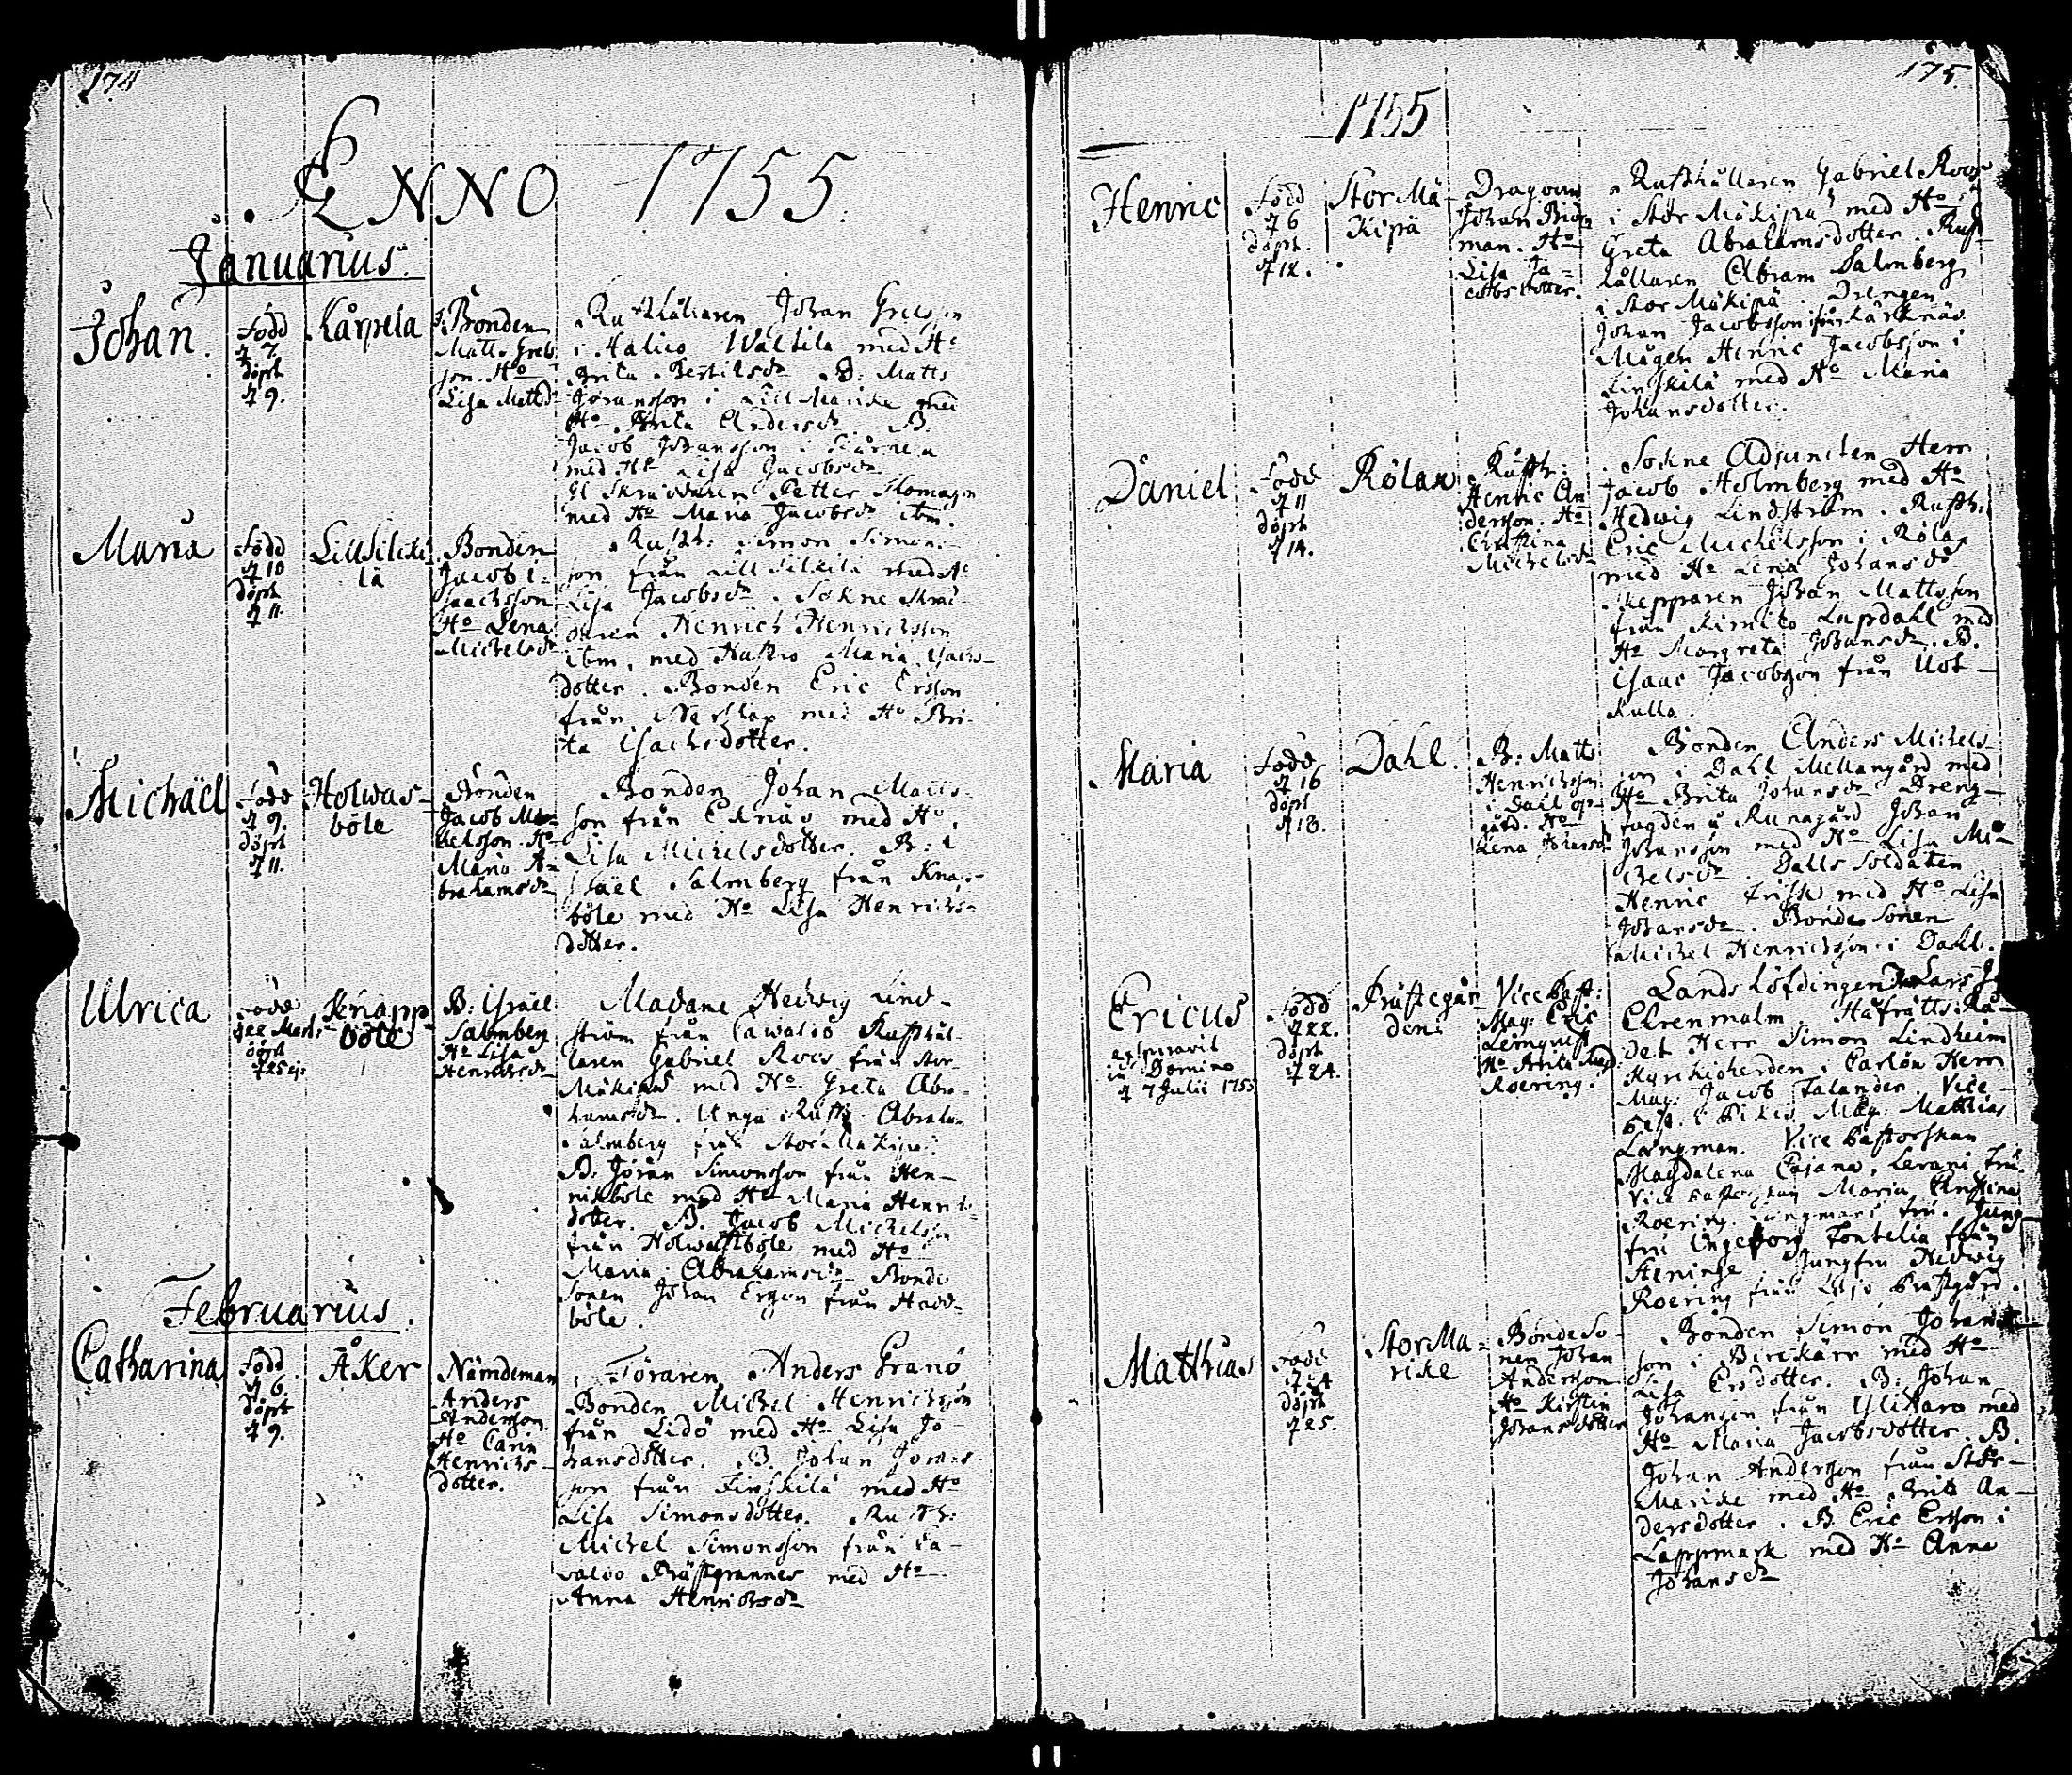 174
ANNO 1755.
Januarius.
Johan.
Född
d 7.
döpt
d 9.
Kårpela
Bonden
Matts Grels
son. Ho
Lisa Mattsdr
Rusthållaren Johan Grelsson
i Halico Waltila med Ho
Brita Bertilsdr B: Matts
Jöransson i Lill Marike med
Ho Brita Andersdr B.
Jacob Johansson i Kårpela
med Ho Lisa Jacobsdr
Skräddaren Petter Thomasson
med Ho Maria Jacobsdr ibm.
Maria
Född
d 10
döpt
d 11.
LillSilcki
lä
Bonden
Jacob I-
saachsson
Ho Lena
Michelsdr
Rusth: Simon Simon-
son från Lill Silkilä med Ho
Lisa Jacobsdr. Sokne Skräd-
daren Henrich Henrichsson
ibm, med Hustro Maria Isachs-
dotter. Bonden Eric Ersson
från med Ho Bri-
ta Isachsdotter.
Michaël
Född
d 9.
döpt
d 11.
Holwas-
böle
Bonden
Jacob Mi-
chelsson. Ho
Maria A-
brahamsdr
Bonden Johan Matts-
son från Eknäs med Ho
Lisa Michelsdotter. B: I
sraël Salmberg från Knap-
böle med Ho Lisa Henrichs-
dotter.
Ulrica
Född
d 22
döpt
d 25
Knapp
böle
B: Israël
Salmberg
Ho Lisa
Henrichsdr
Madame Hedwig Lind-
ström från Cawaldo Rusthål-
laren Gabriel Roos från Stor-
Mäkipä med Ho Greta Abra-
hamsdr. Unga Rusth. Abraham
Salmberg från Stor Mäkipä.
B. Jöran Simonsson från Hen-
riksböle med Ho Maria Henrichs
dotter. B. Jacob Michelsson
från Holwastböle med Ho
Maria Abrahamsdr Bonde
Sonen Johan Ersson från Hadd-
böle.
Februarius.
Catharina
Född
d 6.
döpt
d 9.
Åker
Nämdeman
Anders
Andersson.
Ho Carin
Henrichs-
dotter.
Föraren Anders Granö
Bonden Michel Henrichsson
från Lidö med Ho Lisa Jo-
hansdotter. B. Johan Jörans-
son från Finskilä med Ho
Lisa Simonsdotter. Rusth:
Michel Simonsson från Ca-
waldo Prästgrannes med Ho
Anna Henrichsdr
175.
1755
Henric
Född
d 6
döpt.
d 12.
Stor Mä-
Kipä
Dragoun
Johan Biör
man. Ho
Lisa Ja-
cobsdotter.
Rusthållaren Gabriel Roos
i Stor Mäkipä med Ho
Greta Abrahamsdotter. Rust-
hållaren Abram Salmberg
i Stor Mäkipä. Drengen
Johan Jacobsson från
Mågen Henric Jacobsson i
Linskilä med Ho Maria
Johansdotter.
Daniel
Född
d 11
döpt
d 14.
Rölax
Rusth:
Henric An
dersson. Ho
Christina
Michelsdr
Sokne Adjuncten Herr
Jacob Holmberg med Ho
Hedwig Lindström. Rusth:
Eric Michelsson i Rölax
med Ho Lena Johansdr
Skepparen Johan Mattsson
från Kimito Lapdahl med
Ho Margreta Johansdr. B.
Isaac Jacobsson från Not-
kulla.
Maria
Född
d 16
döpt
d 18.
Dahl.
B: Matts
Henrichsson
i Dahl op-
gård. Ho
Lena Johansdr
Bonden Anders Michels-
son i Dahl Mellangård med
Ho Brita Johansdr Dreng-
fogden å Runagård Johan
Johansson med Ho Lisa Mi-
chelsdr. Dalls Soldaten
Henric Frisk med Ho Lisa
Johansdr. Bonde Sonen
Michel Henrichsson i Dahl.
Ericus
expiravit
in Domino
d 7 Julii 1755
Född
d 22.
döpt
d 24.
Prästegår
den
Vice Past:
Mag: Eric
Lernqvist
Ho Brita
Roering.
Landshöfdingen Lars J
Ehrenmalm. Håfrätts Rå-
det Herr Simon Lindheim
Kyrckioherden i Carlöu Herr
Mag: Jacob Talander. Vice-
Past. i Pikis Mag: Matthias
Langman. Vice Pastorskan
Magdalena Cajana, Levani fru.
Vice Pastorskan Maria Christina
Roering. Langmans fru. Jung
fru Ingeborg Fontelia från
Heninge. Jungfru Hedwig
Roering från Lojo Prästgård.
Matthias
Född
d 24
döpt
d 25.
Stor Ma-
rike
Bonde So-
nen Johan
Andersson
Ho Kirstin
Johansdotter
Bonden Simon Johans
son i Birckärr med Ho
Lisa Ersdotter. B: Johan
Johansson från Yliskaro med
Ho Maria Jacobsdotter. B.
Johan Andersson från Stor-
Marike med Ho Brita An-
dersdotter. B. Eric Ersson i
Lappmark med Ho Anna
Johansdr